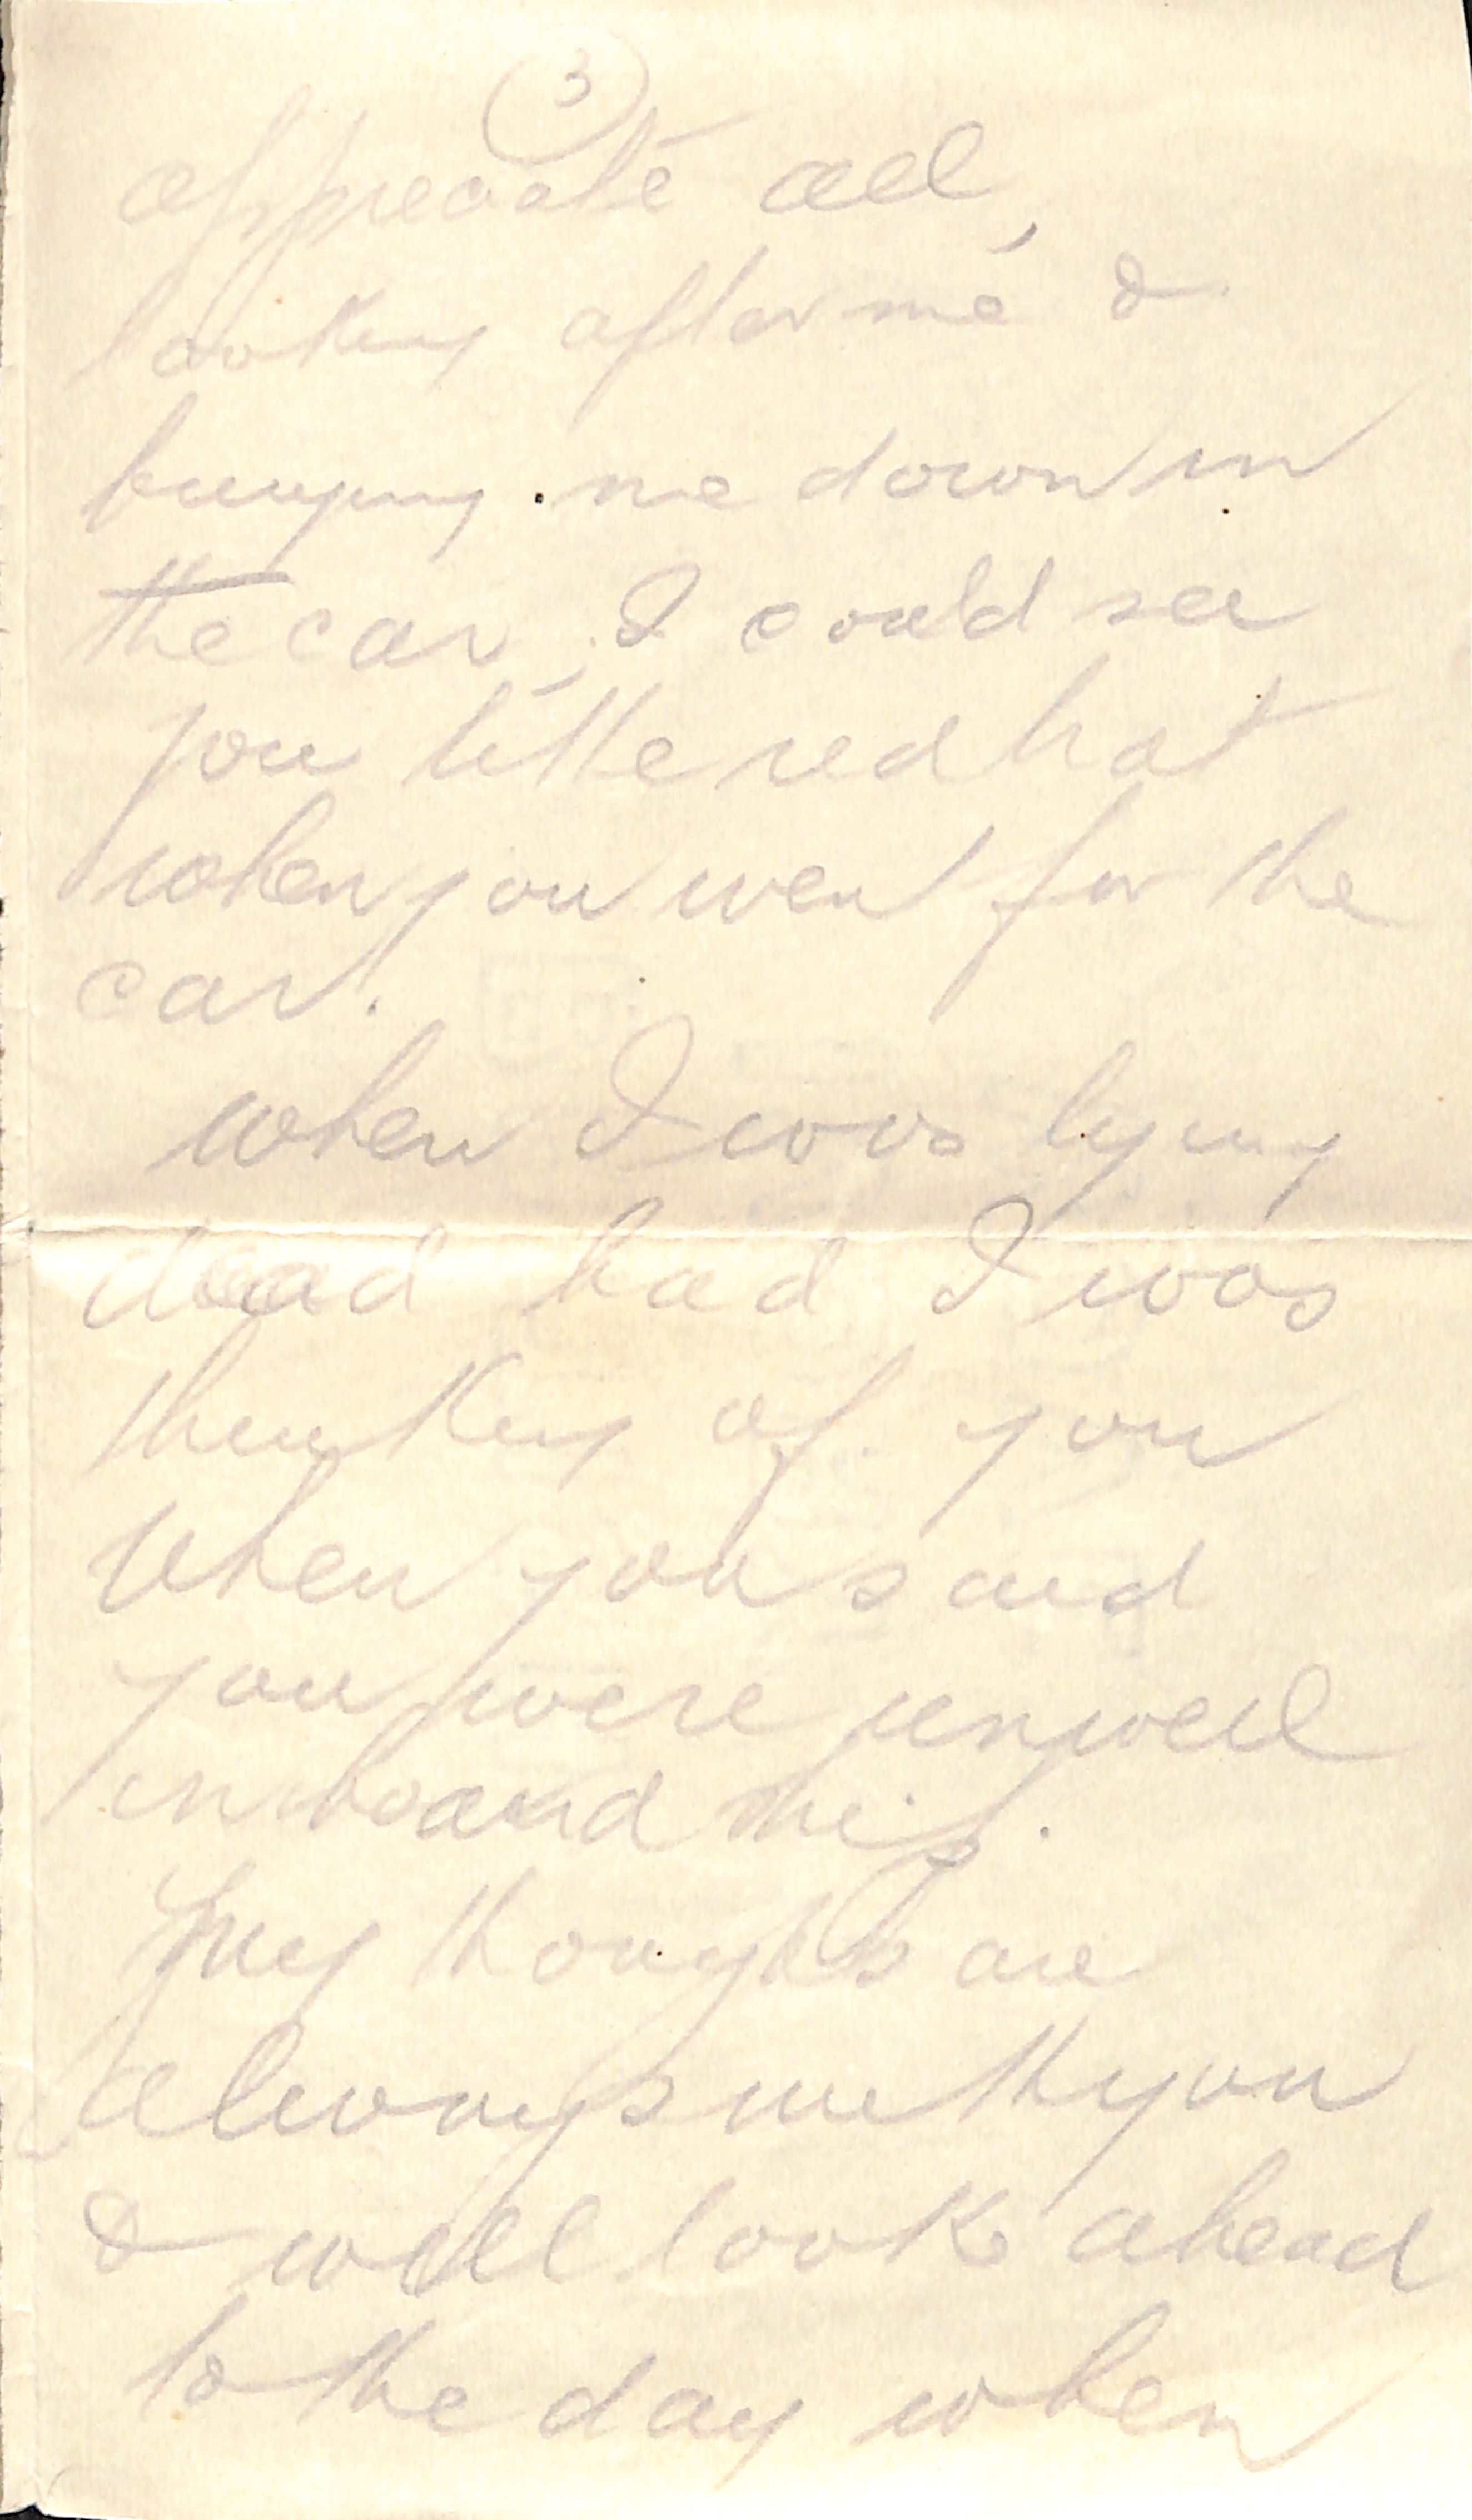 3
appreciate all,
looking after me &
bringing me down in
the car, I could see
you little red hat
when you went for the
car.
when I was lying
dead had I was
thinking of you
when you said
you were unwell
in board ship.
My thoughts are
always with you
& will look ahead
to the day when